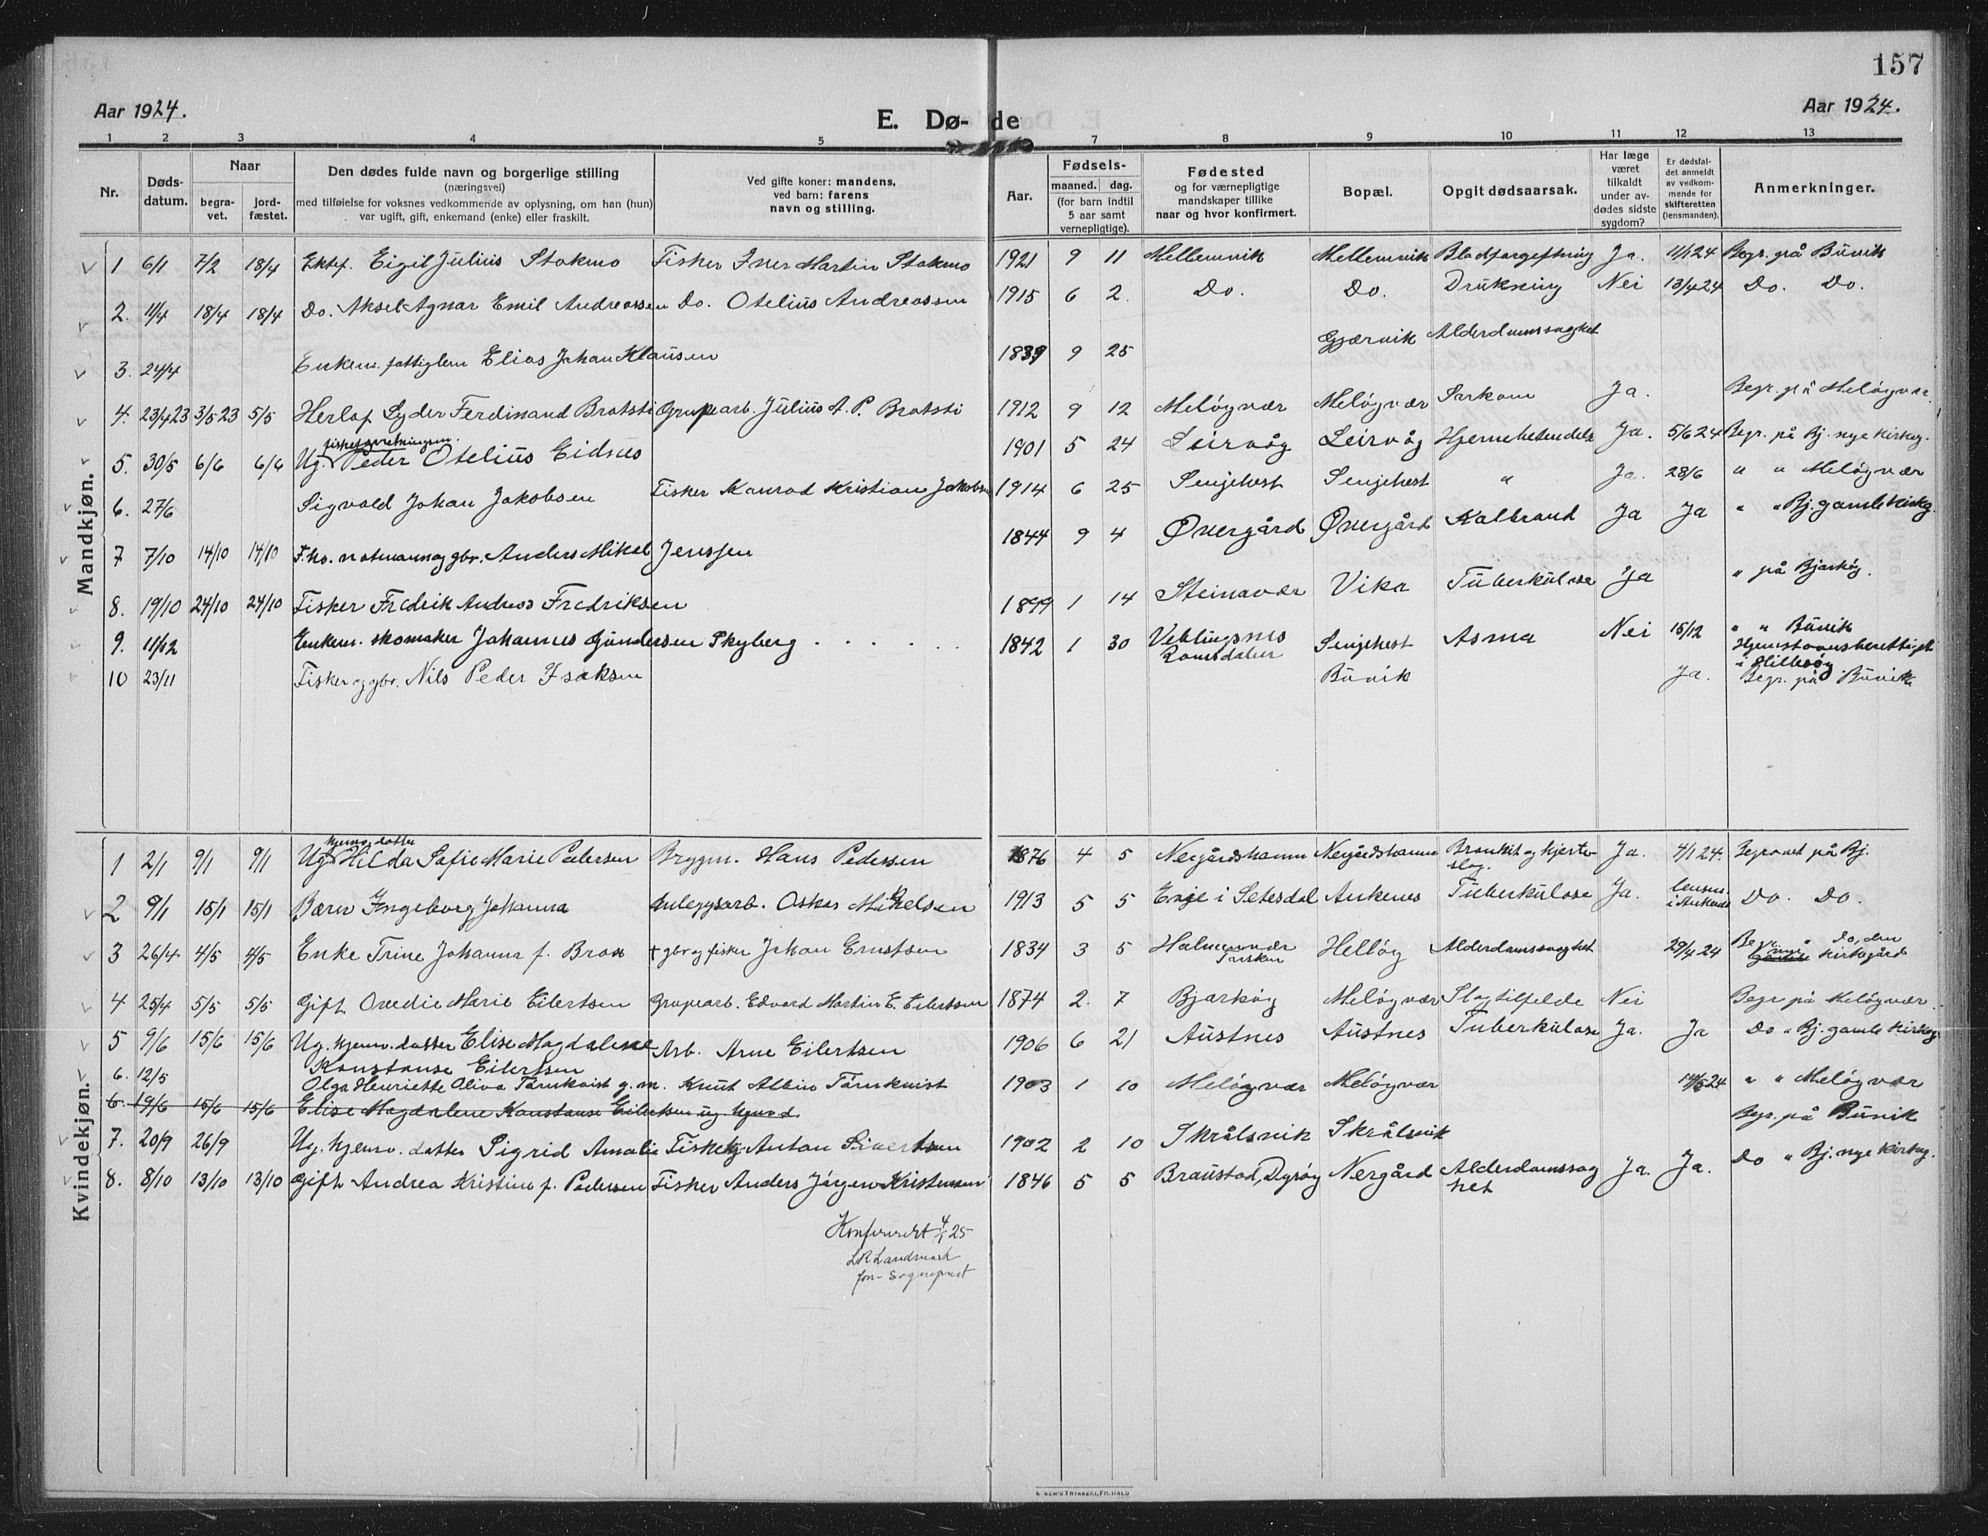 157
Aar 1924.
E. Dø- de
Aar 1924.
1 2 3 4 5 7 8 9 10 11 12 13
Nr.
Døds-
datum.
Naar
begra-
vet.
jord-
fæstet.
Den dødes fulde navn og borgerlige stilling
(næringsvei)
med tilføielse for voksnes vedkommende av oplysning, om han (hun)
var ugift, gift, enkemand (enke) eller fraskilt.
Ved gifte koner: mandens,
ved barn: farens
navn og stilling.
Aar.
Fødsels-
maaned. dag.
(for barn indtil
5 aar samt
vernepligtige).
Fødested
og for værnepligtige
mandskaper tillike
naar og hvor konfirmert.
Bopæl.
Opgit dødsaarsak.
Har læge
været
tilkaldt
under av-
dødes sidste
sygdom?
Er dødsfal-
det anmeldt
av vedkom-
mende for
skifteretten
(lensmanden).
Anmerkninger.
Mandkjøn.
1 6/1 7/2 18/4 Ektef. Eigil Julius Stokmo Fisker Iver Martin Stokmo 1921 9 11 Mellemvik Mellemvik Blodforgiftning Ja. 11/1 24 Begr. på Búvik
2. 11/4 18/4 18/4 Do. Aksel Agnar Emil Andreassen Do. Otelius Andreassen 1915 6 2. Do. Do. Drukning Nei 13/4 24 Do. Do.
3. 24/4 Enkem. fattiglem Elias Johan Klausen 1839 9 25 Gjærvik Alderdomssvaghet
4. 23/4 23 3/5 23 5/5 Herlof Syder Ferdinand Brotsti Grubearb. Julius A. P. Brotsti 1912 9 12 Meløyvær Meløyvær Sarkom Ja. Begr. på Meløyvær
5. 30/5 6/6 6/6 Ug. Peder Otelius Eidnes 1901 5 24 Leirvåg Leirvåg Hjernebetendelse Ja. 5/6 24 Begr. på Bj. nye kirkeg.
6. 27/6 Sigvald Johan Jakobsen Fisker Konrad Kristian Jakobsen 1914 6 25 Senjehest Senjehest " Ja. 28/6 " " Meløyvær
7 7/10 14/10 14/10 F.ho. notmann og gbr. Anders Mikal Jenssen 1844 9 4 Øvergård Øvergård Kolbrand Ja Ja " " Bj. gamle kirkeg.
8. 19/10 24/10 24/10 Fisker Fredrik Andreas Fredriksen 1899 1 14 Steinavær Vika Tuberkulose Ja " på Bjarkøy.
9. 11/12 Enkem. skomaker Johannes Gundersen Skyberg . . . . . 1842 1 30 Veblungsnes
Romsdalen Senjehest Asma Nei 15/12 " " Búvik
Hjemstavnsberettiget
i Hillesøy
10 23/11 Fisker og gbr. Nils Peder Isaksen Búvik Ja. Begr. på Búvik
Kvindekjøn.
1 2/1 9/1 9/1 Ug. Hilda Sofie Marie Pedersen Bryggm. Hans Pedersen 1876 4 5 Nergårdshamn Nergårdshamn Bronkit og hjerte-
slag. Ja. 4/1 24. Begravet på Bj.
2 9/1 15/1 15/1 Barn Ingeborg Johanna Anleggsarb. Oskar Mikkelsen 1913 5 5 Enge i Setesdal Ankenes Tuberkulose Ja. lensm.
i Ankenes Do. Do.
3 26/4 4/5 4/5 Enke Trine Johanna f. Brox + gbr og fisker Johan Ernstsen 1834 3 5 Holmenvær
Torsken Helløy Alderdomssvaghet 29/4 24 Begr. " Do, den
nye kirkegård
4 25/4 5/5 5/5 Gift Ovedie Marie Eilertsen Grubearb. Edvard Martin E. Eilertsen 1874 2. 7 Bjarkøy Meløyvær Slagtilfelde Nei Begr på Meløyvær
5 9/6 15/6 15/6 Ug. hjemv. datter Elise Magdalene
Konstanse Eilertsen Arb. Arne Eilertsen 1906 6 21 Austnes Austnes Tuberkulose Ja. Ja Do " Bj. gamle kirkeg
6. 12/5 Olga Henriette Oliva Tørnkvist g. m. Knut Albin Tørnkvist 1903 1 10 Meløyvær Meløyvær 14/5 24 " " Meløyvær
6. 19/6 15/6 15/6 Elise Magdalene Konstanse Eilertsen ug hjemvd.
7. 20/9 26/9 Ug. hjemv. datter Sigrid Amalie Anton Sivertsen 1902 2 10 Skrålsvik Skrålsvik Begr. på Búvik
8. 8/10 13/10 13/10 Gift Andrea Kristine f. Pedersen Fisker Anders Jørgen Kristensen 1846 5 5 Braustad, Dyrøy Nergård Alderdomssvag
het Ja. Ja. Do " Bj. nye kirkeg.
Konfereret 4/1 25
L R Landmark
fon- Sogneprest